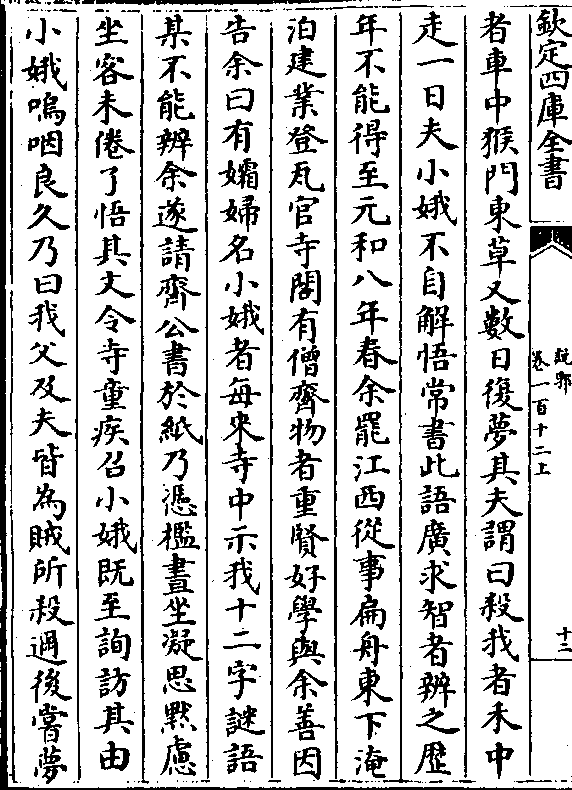 欽定四庫全書
說郛
卷一百十二上
十三
者車中猴門東草又數日復夢其夫謂曰殺我者禾中
走一日夫小娥不自解悟常書此語廣求智者辨之歷
年不能得至元和八年春余罷江西從事扁舟東下淹
泊建業登瓦官寺閣有僧齊物者重賢好學與余善因
告余曰有孀婦名小娥者每來寺中示我十二字謎語
某不能辨余遂請齊公書於紙乃憑檻晝坐凝思默慮
坐客未倦了悟其文令寺童疾召小娥既至詢訪其由
小娥嗚咽良久乃曰我父及夫皆為賊所殺邇後嘗夢